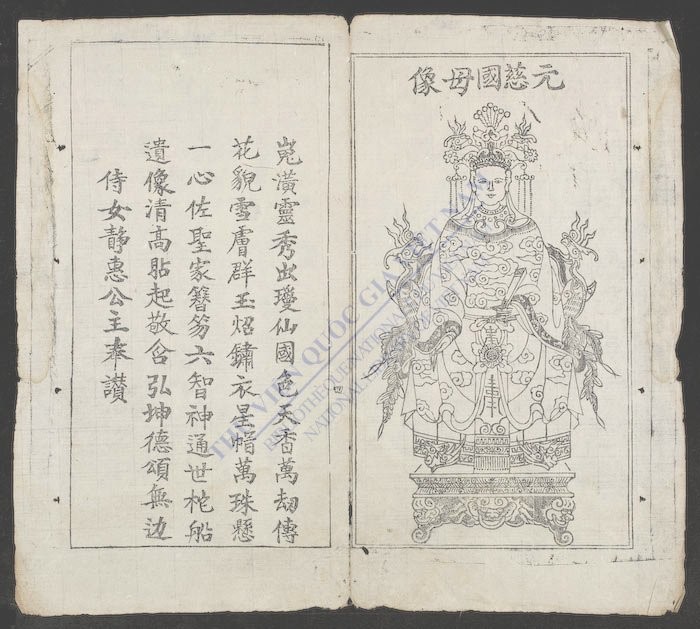 元慈國母像
嵬潢靈秀出瓊仙國色天香萬刼傳
花貌雪膚群玉炤鏽衣星帽萬珠懸
一心佐聖家簪笏六智神通世柁船
遺像清高貼起敬含弘坤德頌無边
侍女靜惠公主奉讃
THƯ VIỆN QUỐC GIA VIỆT NAM
BIBLIOTHEQUE NATIONALE
NATIONAL LIBRARY